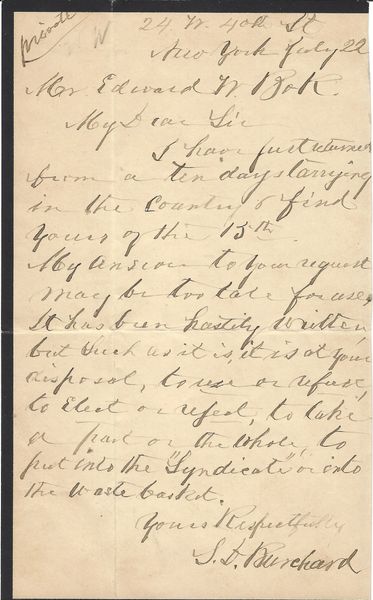 private
24 W. 40th St
New York July 22
Mr Edward W. Bok.
My Dear Sir
I have just returned
from a ten days tarrying
in the country & find
yours of the 15th.
My answer to your request
may be too late for use,
It has been hastily written
but such as it is, it is at your
disposal, to use or refuse,
to Elect or reject, to take
a part or the whole, to
put into the "Syndicate", or into
the waste basket.
Yours Respectfully
S. D. Burchard